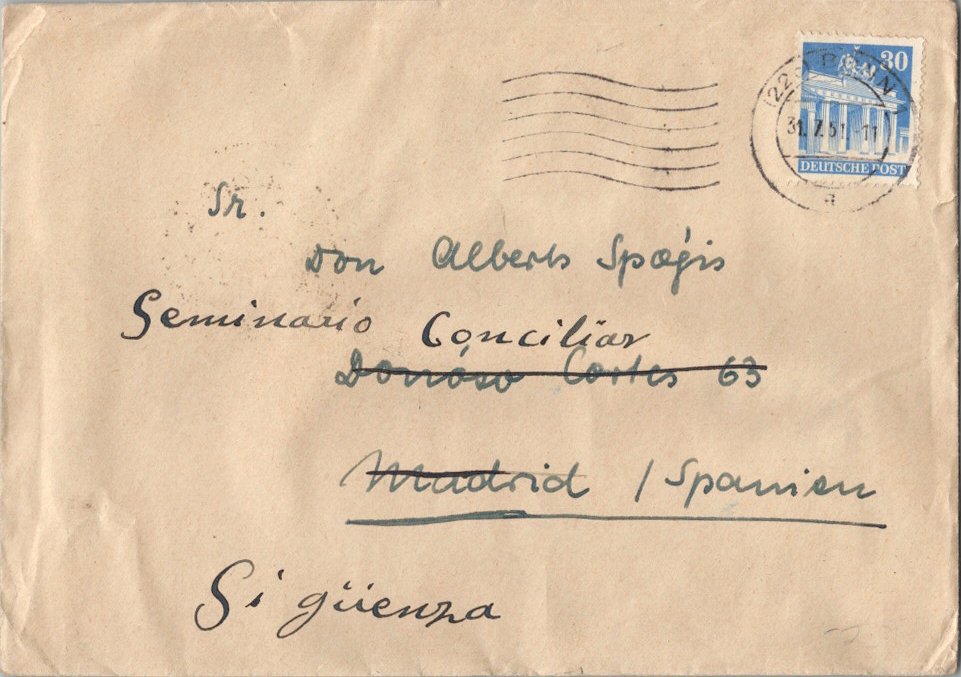 30
DEUTSCHE POST
BONN
31.7.51.-11
a
Sr.
Don Alberto
Seminario Conciliar
Donóso Cortes 63
Madrid / Spanien
Sigüenza